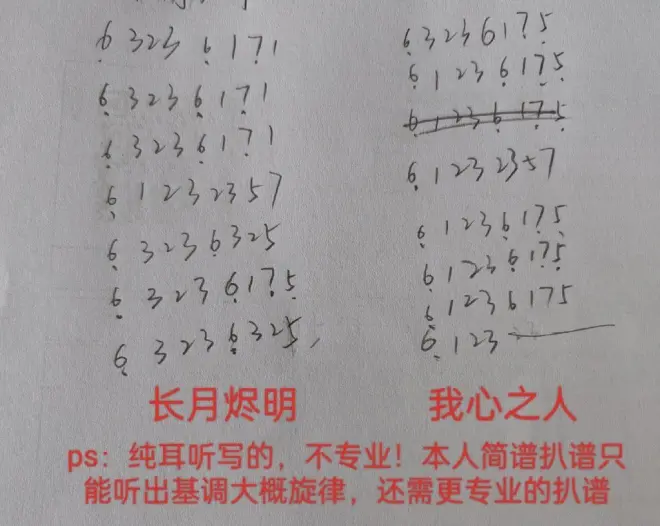 6̣ 3 2 3 6̣ 1 7̣ 1
6̣ 3 2 3 6̣ 1 7̣ 1
6̣ 3 2 3 6̣ 1 7̣ 1
6̣ 1 2 3 2 3 5 7
6̣ 3 2 3 6̣ 3 2 5
6̣ 3 2 3 6̣ 1 7̣ 5̣
6̣ 3 2 3 6̣ 3 2 5,
长月烬明
6̣ 3 2 3 6 1 7 5̣
6̣ 1 2 3 6̣ 1 7̣ 5̣
6̣ 1 2 3 6̣ 1 7̣ 5̣
6̣ 1 2 3 2 3 5 7
6̣ 1 2 3 6̣ 1 7̣ 5̣
6̣ 1 2 3 6̣ 1 7̣ 5̣
6̣ 1 2 3 6 1 7 5
6̣ 1 2 3 —
我心之人
ps：纯耳听写的，不专业！本人简谱扒谱只
能听出基调大概旋律，还需更专业的扒谱